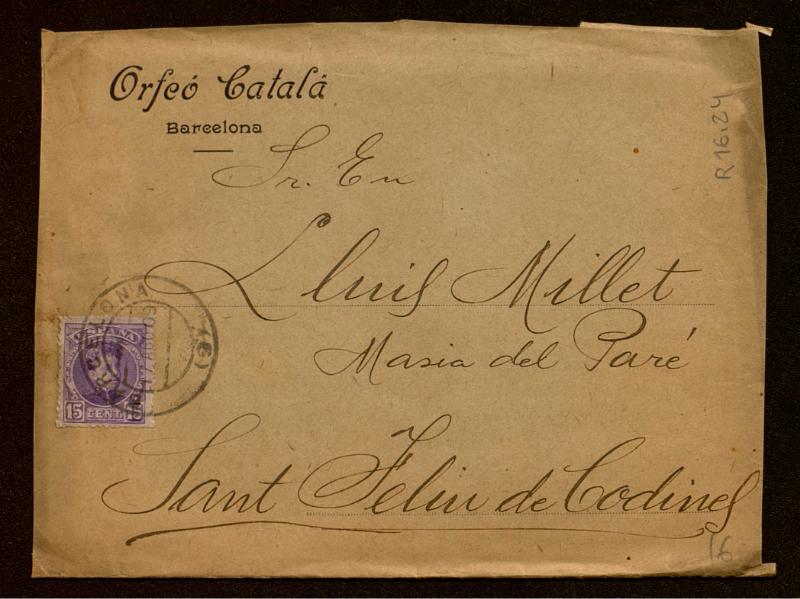 Orfeó Català
Barcelona
R 16.24
Sr. En
Lluis Millet
Masia del Paré
Sant Feliu de Codines
BARCELONA
(6)
ESPAÑA
15 CENT. 15
16